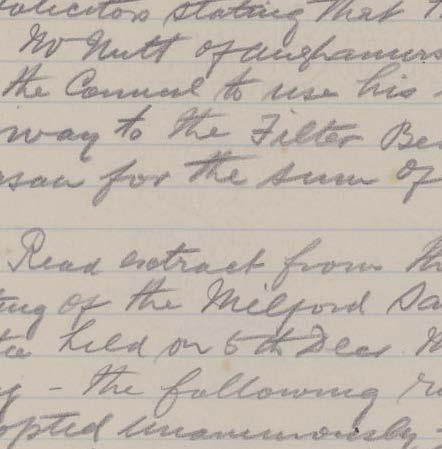 solicitors stating that
McNutt of
the Council to use his
way to the Filter Be
for the sum of
Read extract from th
ting of the Milford Sa
held on 5th Decr
- the following r
opted unanimously